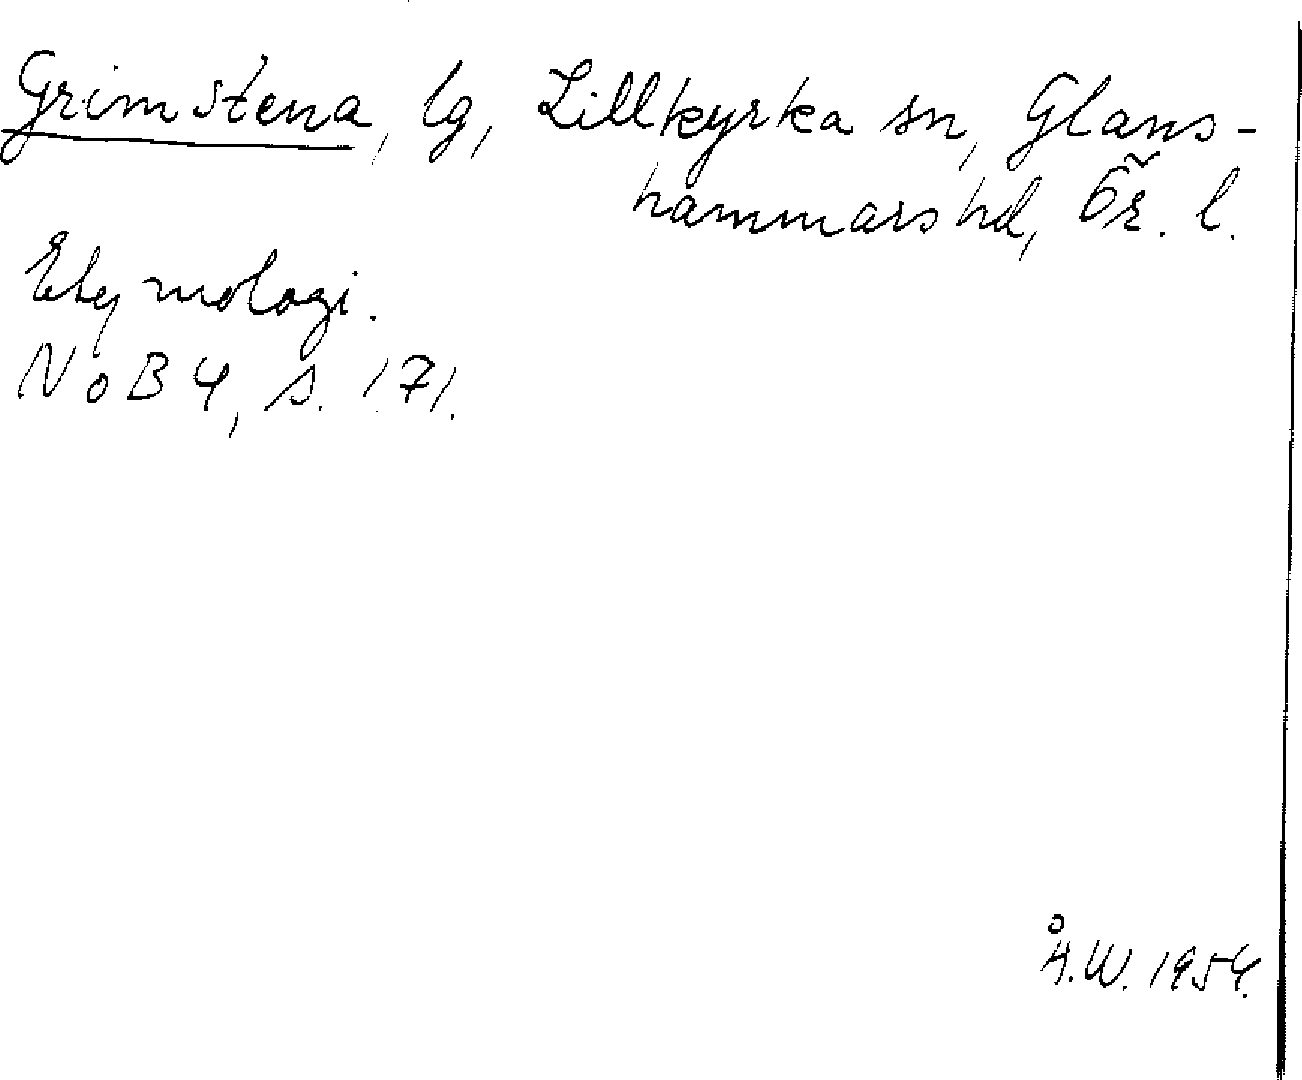 Grimstena, lg, Lillkyrka sn, Glans-
hammars hd, Ör. l.
Etymologi.
NoB 4, s. 171.
Å.W. 1954.